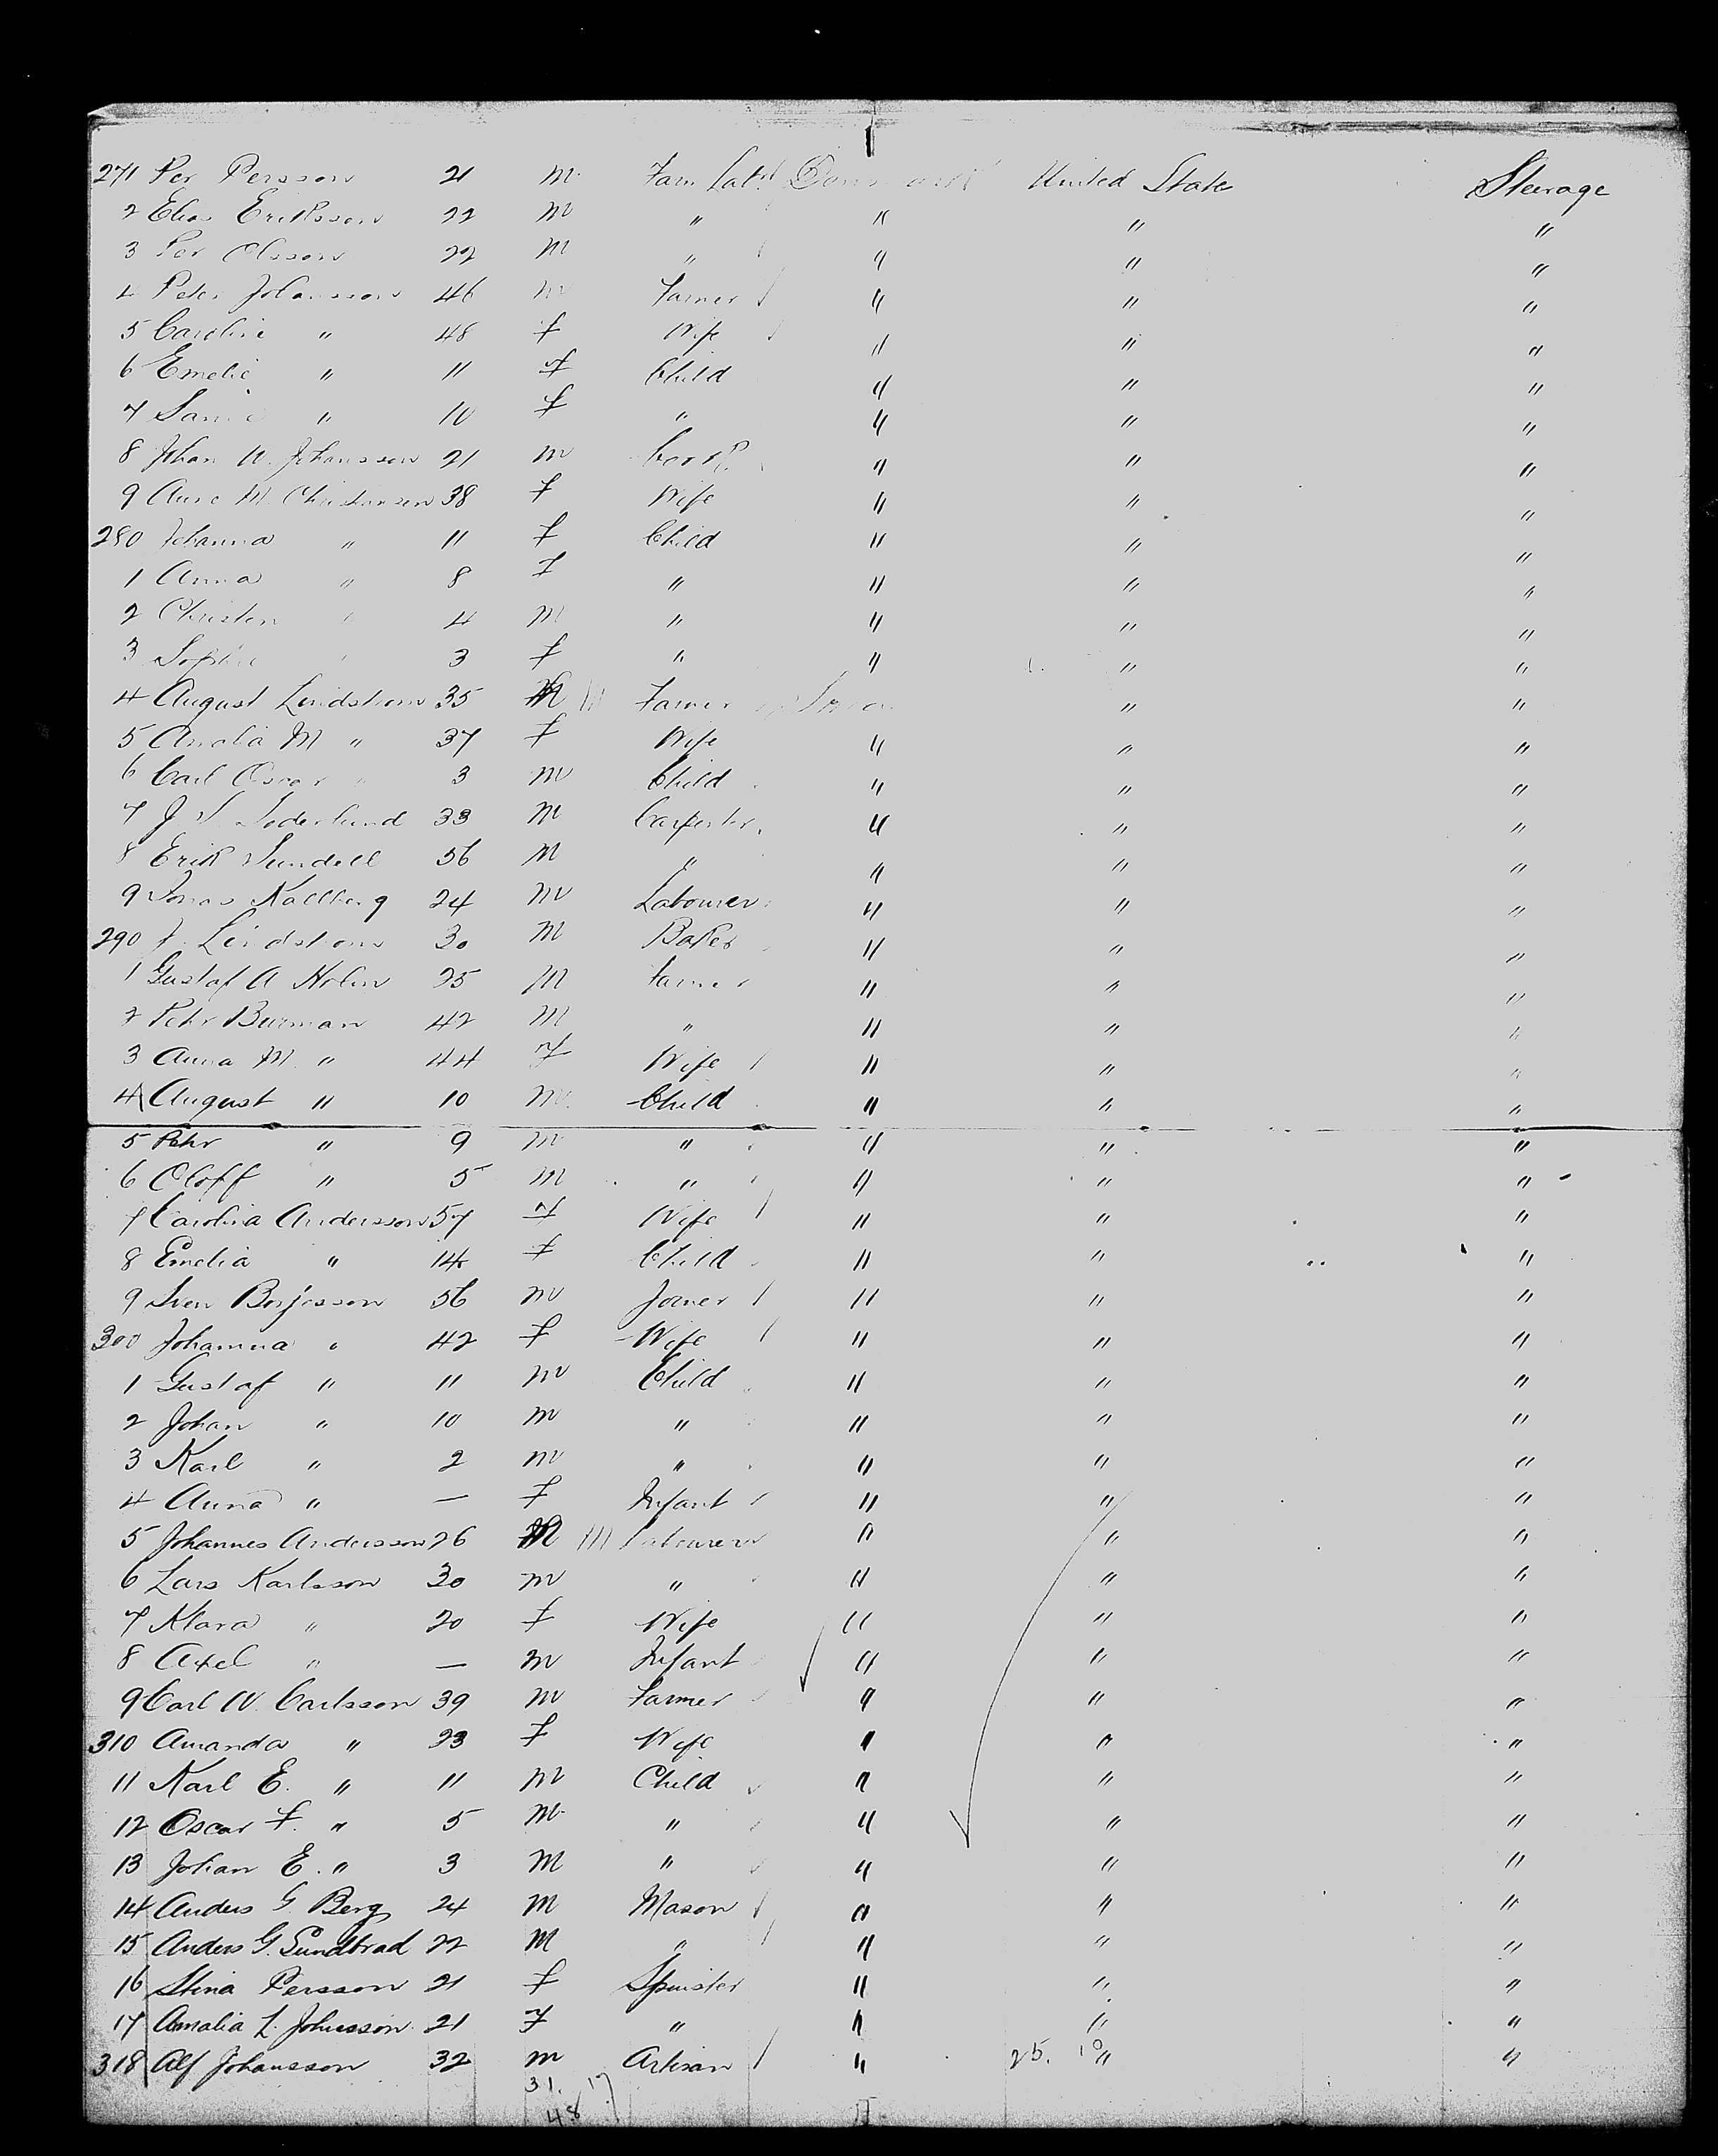 271 Per Persson 21 m Farm Labr Denmark United State Steerage
2 Elias Eriksson 22 m " " " "
3 Per Olsson 22 m " " " "
4 Peter Johansson 46 m Farmer " " "
5 Caroline " 48 f Wife " " "
6 Emelie " 11 f Child " " "
7 " 10 f " " " "
8 Johan W. Johansson 21 m " " "
9 Ane M. Christensen 38 f Wife " " "
280 Johanna " 11 f Child " " "
1 Anna " 8 f " " " "
2 Christen " 4 m " " " "
3 Sophie " 3 f " " " "
4 August Lindstrom 35 m Farmer " "
5 Amalia M " 37 f Wife " " "
6 Carl Oscar " 3 m Child " " "
7 J Soderlund 33 m Carpenter " " "
8 Erik Sundell 56 m " " " "
9 Jonas Kallberg 24 m Labourer " " "
290 J. Lindstrom 30 m Baker " " "
1 Gustaf A Holm 25 m Farmer " " "
2 Pehr Burman 42 m " " " "
3 Anna M. " 44 f Wife " " "
4 August " 10 m Child " " "
5 Pehr " 9 m " " " "
6 Oloff " 5 m " " " "
7 Carolina Andersson 57 f Wife " " "
8 Emelia " 14 f Child " " "
9 Sven Borjesson 56 m Joiner " " "
300 Johanna " 42 f Wife " " "
1 Gustaf " 11 m Child " " "
2 Johan " 10 m " " " "
3 Karl " 2 m " " " "
4 Anna " — f Infant " " "
5 Johannes Andersson 26 m Labourer " " "
6 Lars Karlsson 30 m " " " "
7 Klara " 20 f Wife " " "
8 Axel " — m Infant " " "
9 Carl W. Carlsson 39 m Farmer " " "
310 Amanda " 23 f Wife " " "
11 Karl E. " 11 m Child " " "
12 Oscar F. " 5 m " " " "
13 Johan E. " 3 m " " " "
14 Anders G Berg 24 m Mason " " "
15 Anders G. Sundbrad 22 m " " " "
16 Stina Persson 21 f Spinster " " "
17 Amalia L. Johnsson 21 f " " " "
318 Alf Johansson 32 m Artisan " 25. 10 " "
31. 17
48